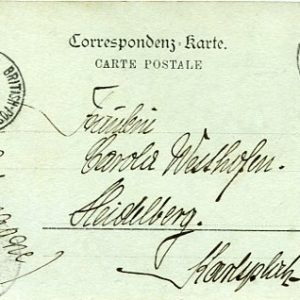 Correspondenz-Karte.
CARTE POSTALE
BRITISH-PO
Fräulein
Carola Westhofen.
Heidelberg.
Karlsplatz